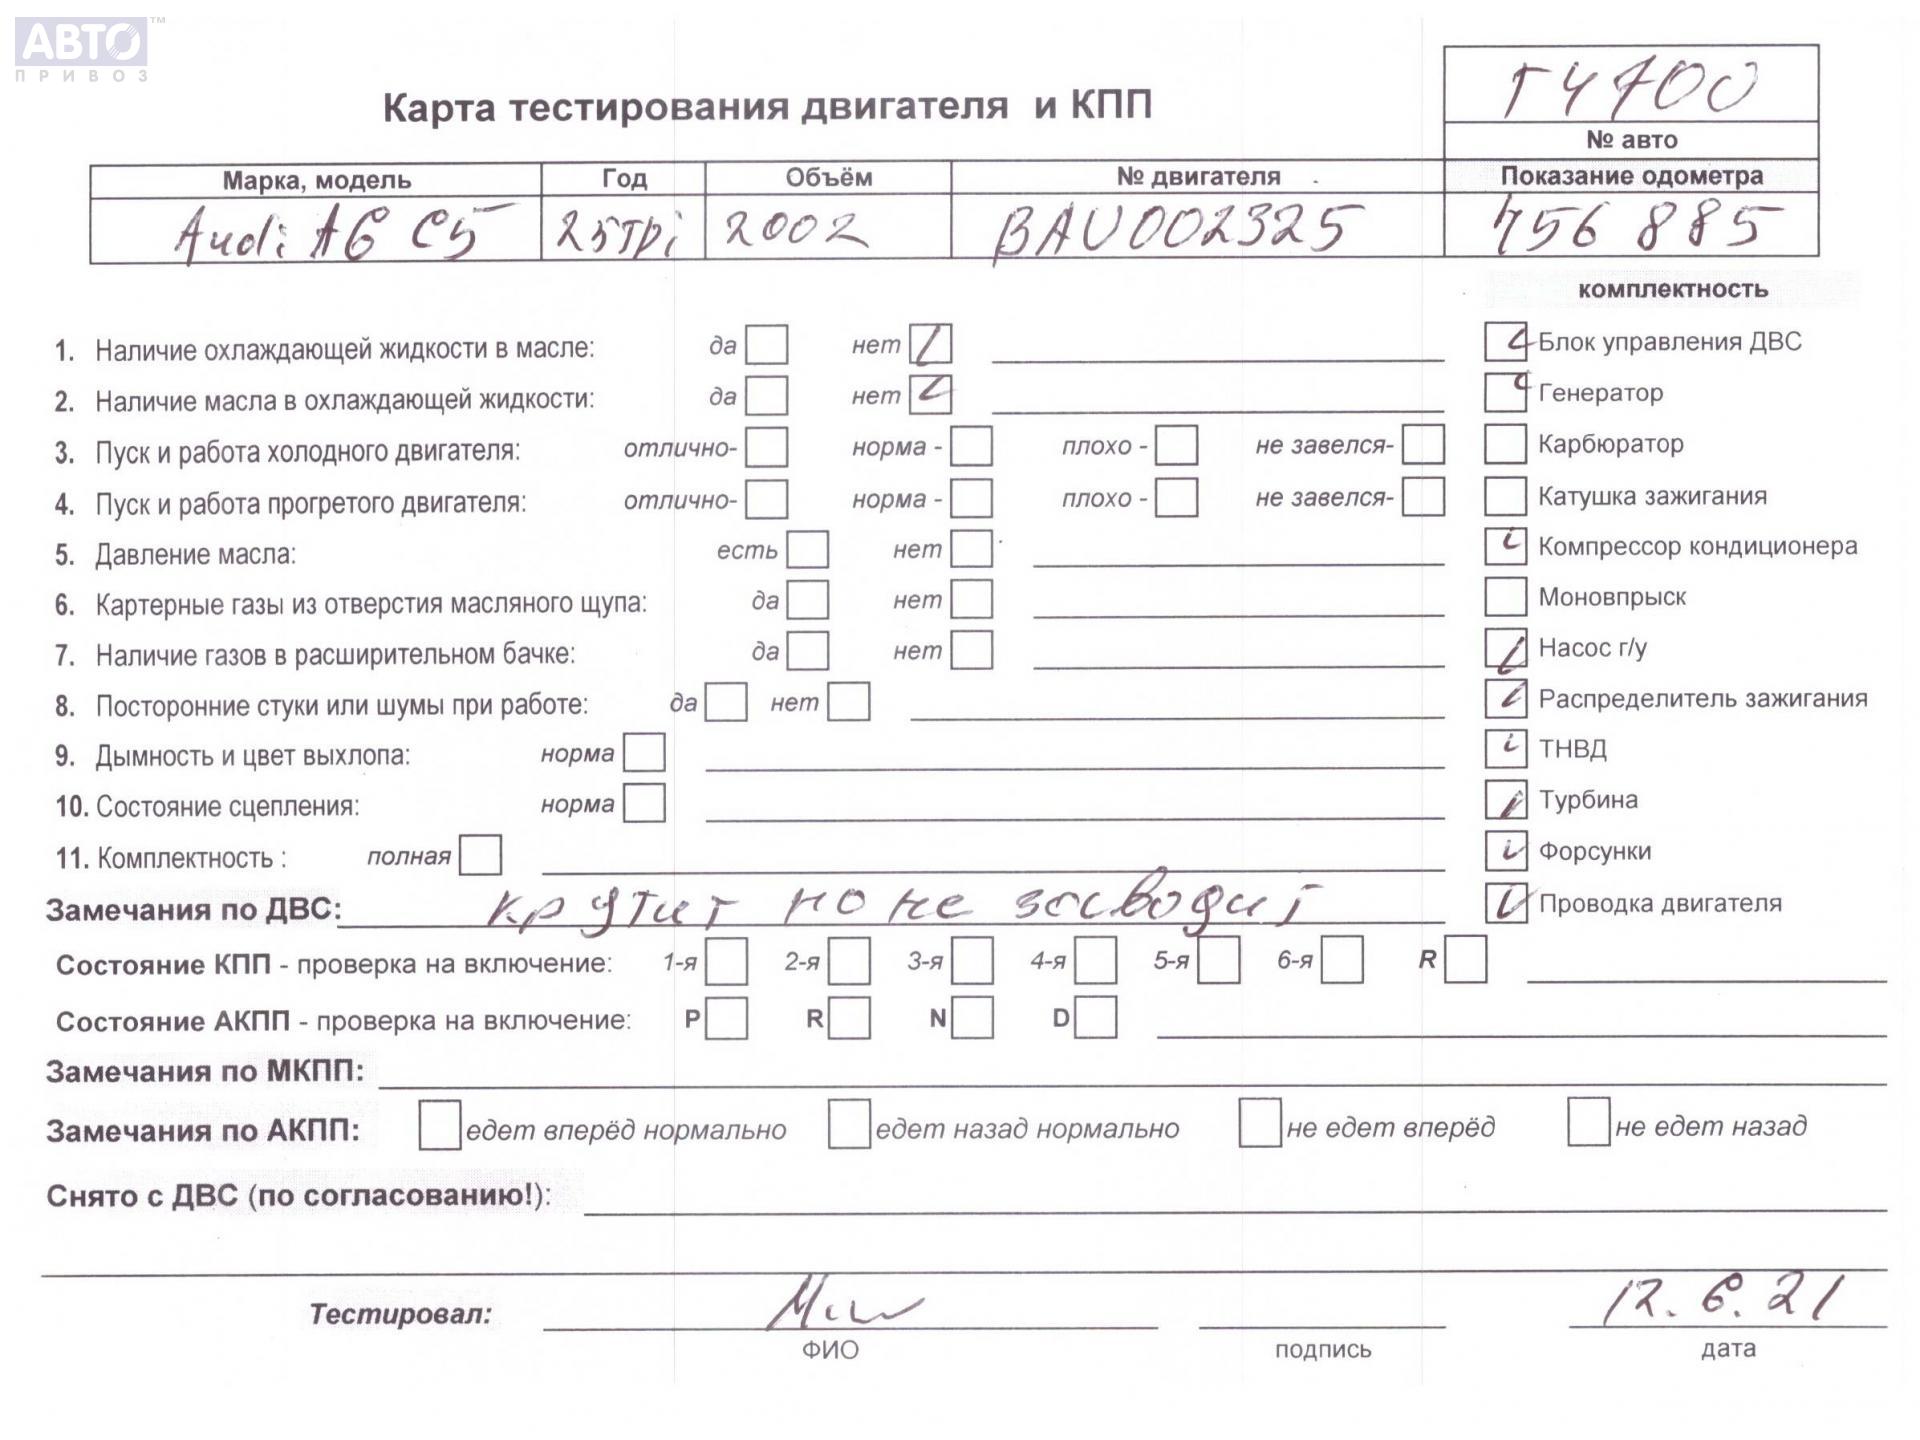 АВТО™
ПРИВОЗ
Т4700
Карта тестирования двигателя и КПП
№ авто
Марка, модель Год Объём № двигателя Показание одометра
Audi A6 C5 25TDi 2002 BAU002325 456 885
комплектность
1. Наличие охлаждающей жидкости в масле: да нет Блок управления ДВС
2. Наличие масла в охлаждающей жидкости: да нет Генератор
3. Пуск и работа холодного двигателя: отлично- норма - плохо - не завелся- Карбюратор
4. Пуск и работа прогретого двигателя: отлично- норма - плохо - не завелся- Катушка зажигания
5. Давление масла: есть нет Компрессор кондиционера
6. Картерные газы из отверстия масляного щупа: да нет Моновпрыск
7. Наличие газов в расширительном бачке: да нет Насос г/у
8. Посторонние стуки или шумы при работе: да нет Распределитель зажигания
9. Дымность и цвет выхлопа: норма ТНВД
10. Состояние сцепления: норма Турбина
11. Комплектность : полная Форсунки
Замечания по ДВС: крутит но не заводит Проводка двигателя
Состояние КПП - проверка на включение: 1-я 2-я 3-я 4-я 5-я 6-я R
Состояние АКПП - проверка на включение: P R N D
Замечания по МКПП:
Замечания по АКПП: едет вперёд нормально едет назад нормально не едет вперёд не едет назад
Снято с ДВС (по согласованию!):
Тестировал: 12.6.21
ФИО подпись дата